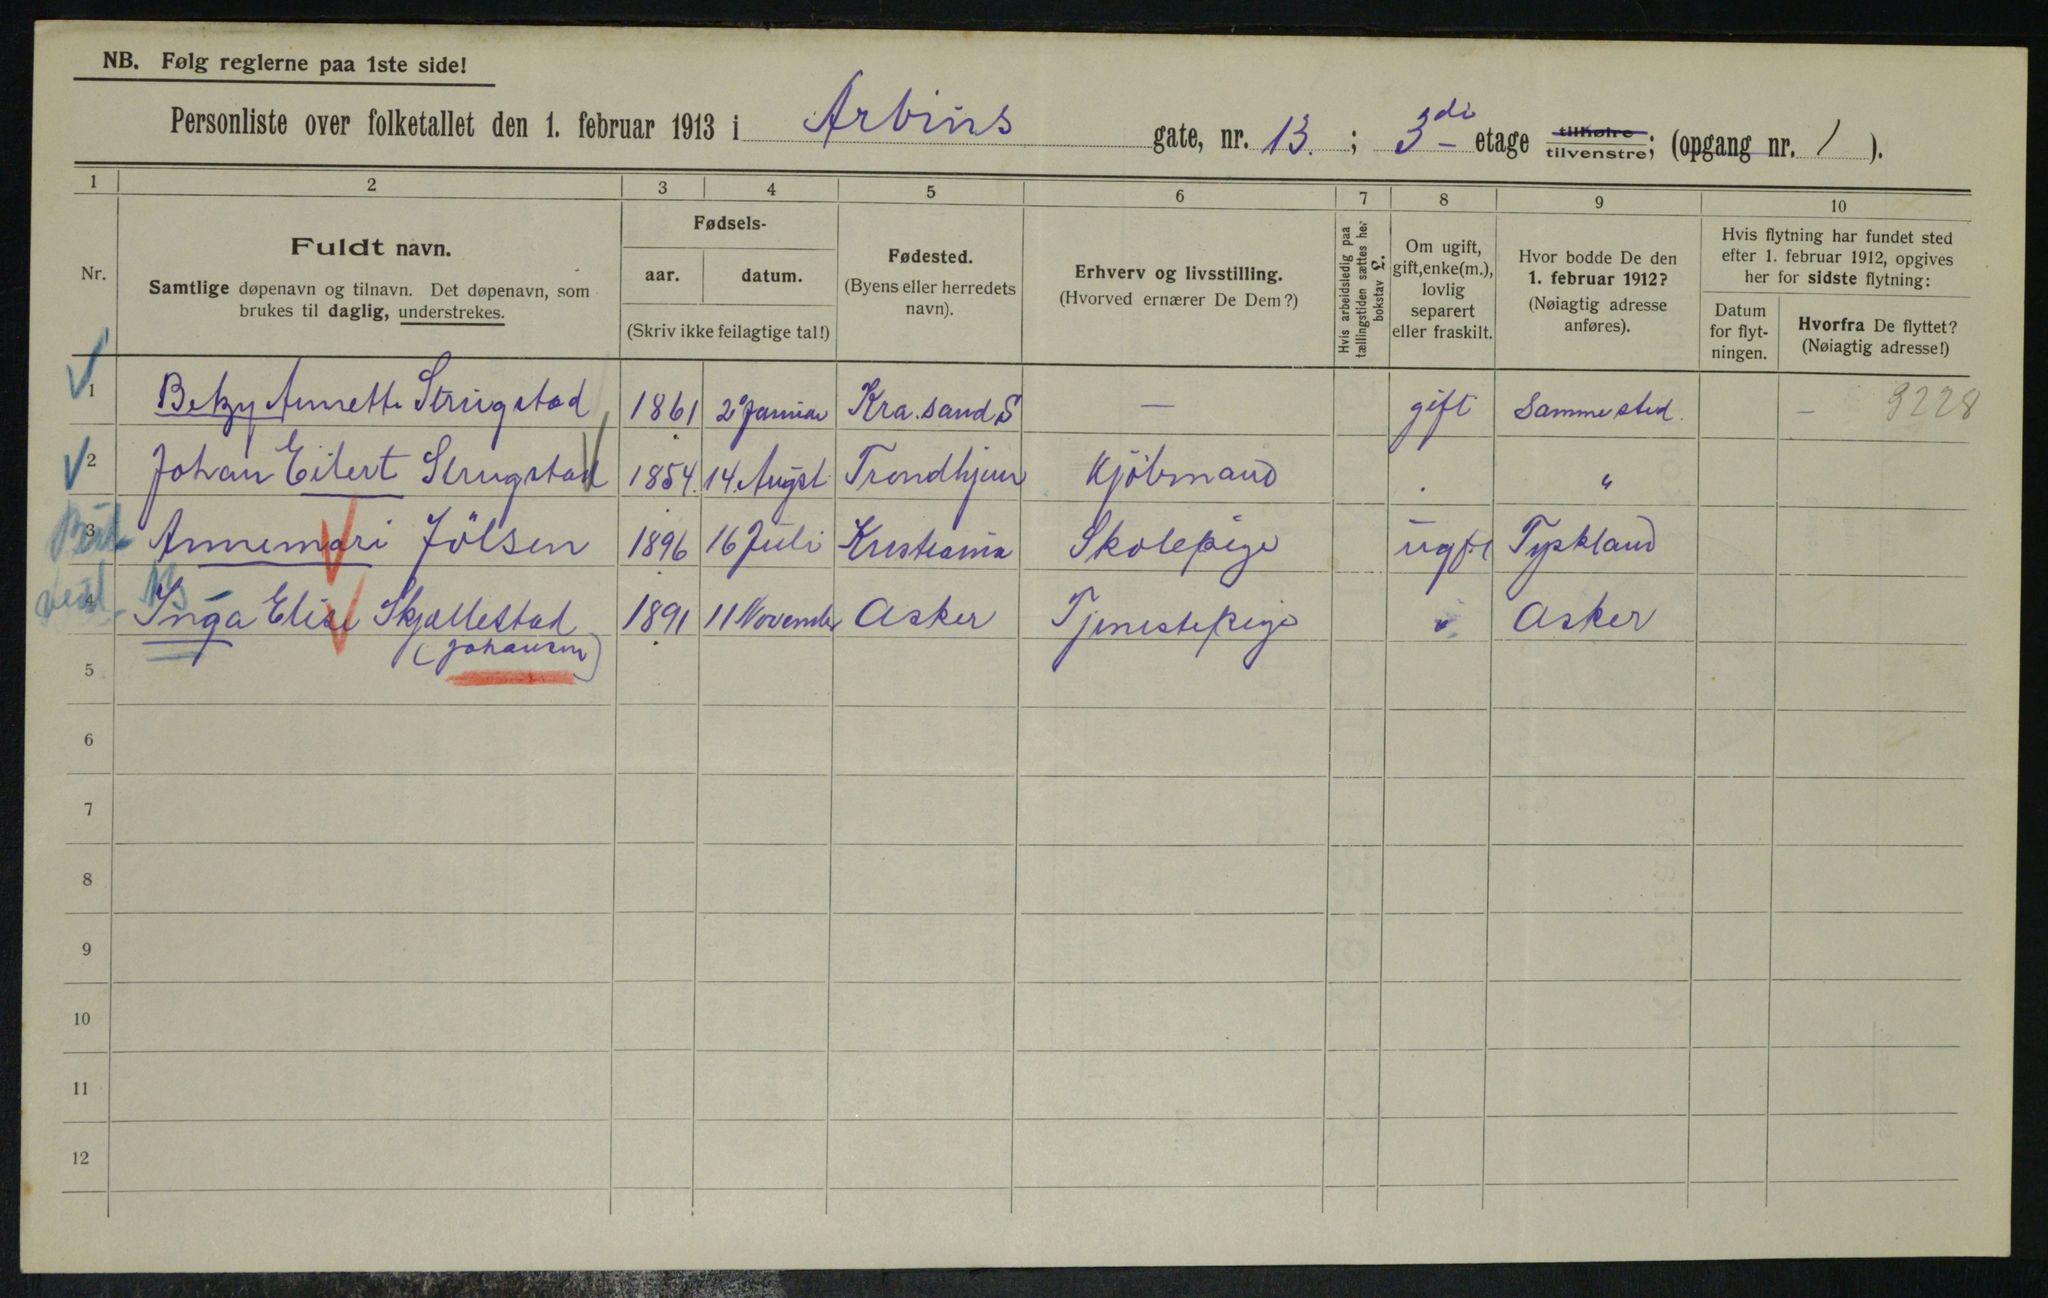 NB. Følg reglerne paa 1ste side!
Personliste over folketallet den 1. februar 1913 i Arbins gate, nr. 13. ; 3di etage tilhøire tilvenstre; (opgang nr. 1 ).
1 2 3 4 5 6 7 8 9 10
Nr.
Fuldt navn.
Samtlige døpenavn og tilnavn. Det døpenavn, som
brukes til daglig, understrekes.
Fødsels-
aar. datum.
(Skriv ikke feilagtige tal!)
Fødested.
(Byens eller herredets
navn).
Erhverv og livsstilling.
(Hvorved ernærer De Dem?)
Hvis arbeidsledig paa
tællingstiden sættes her
bokstav L.
Om ugift,
gift, enke(m.),
lovlig
separert
eller fraskilt.
Hvor bodde De den
1. februar 1912?
(Nøiagtig adresse
anføres).
Hvis flytning har fundet sted
efter 1. februar 1912, opgives
her for sidste flytning:
Datum
for flyt-
ningen.
Hvorfra De flyttet?
(Nøiagtig adresse!)
1 Betzy Annette Strugstad 1861 2 Januar Kra.sand S — gift Samme sted. — 9228
2 Johan Eilert Strugstad 1854. 14. Augst. Trondhjem Kjöbmand . "
3 Annemari Jölsen 1896 16 Juli Kristiania Skolepige ugift Tyskland
4 Inga Elise Skjellestad 1891 11 November Asker Tjenestepige " Asker
(Johansen)
5
6
7
8
9
10
11
12